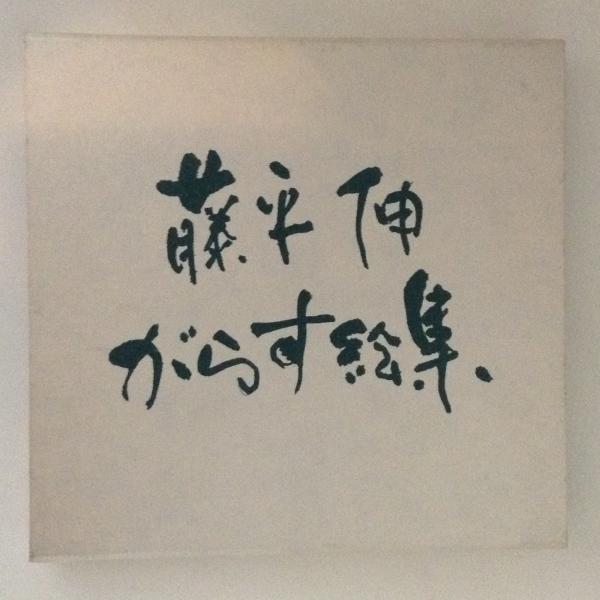 藤平伸
がらす絵集